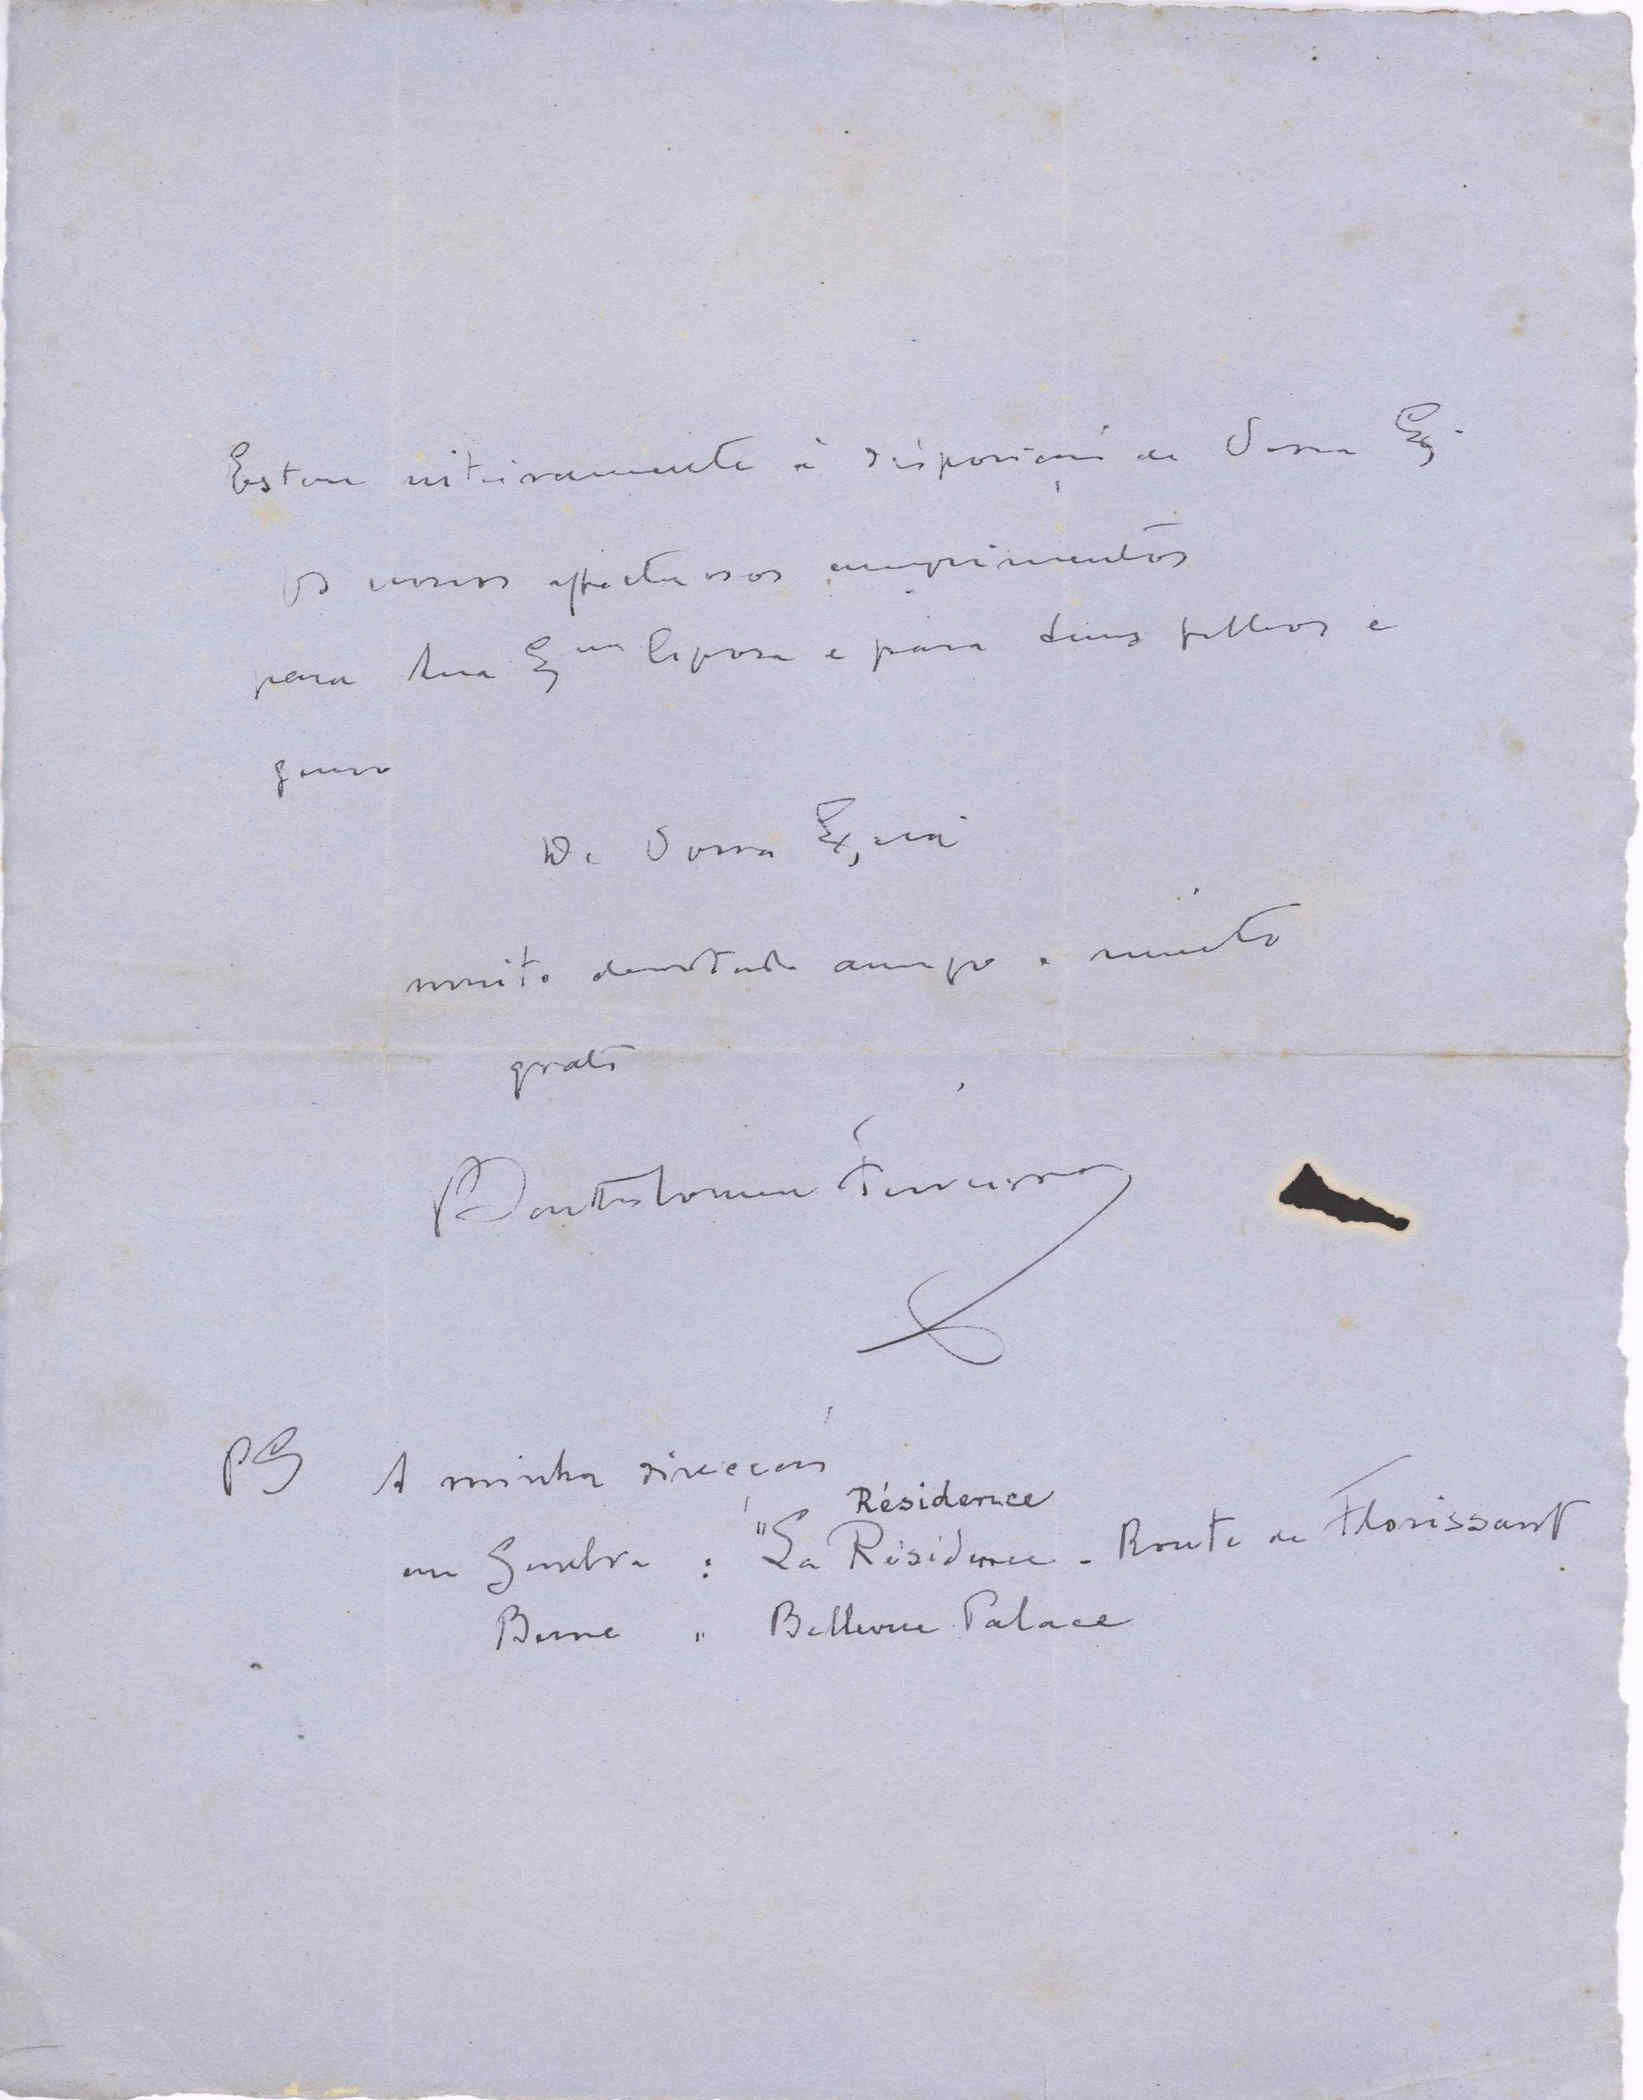 Estou inteiramente á disposição de Vossa Ex.
Os nossos affectuosos cumprimentos
para Sua Exma Esposa e para seus filhos e
genro
De Vossa Ex,cia
muito devotado amigo e muito
grato
Bartholomeu Ferreira
PS A minha direcção
Résidence
em Genebra : "La Résidence - Route de Florissant
Berne " Bellevue Palace